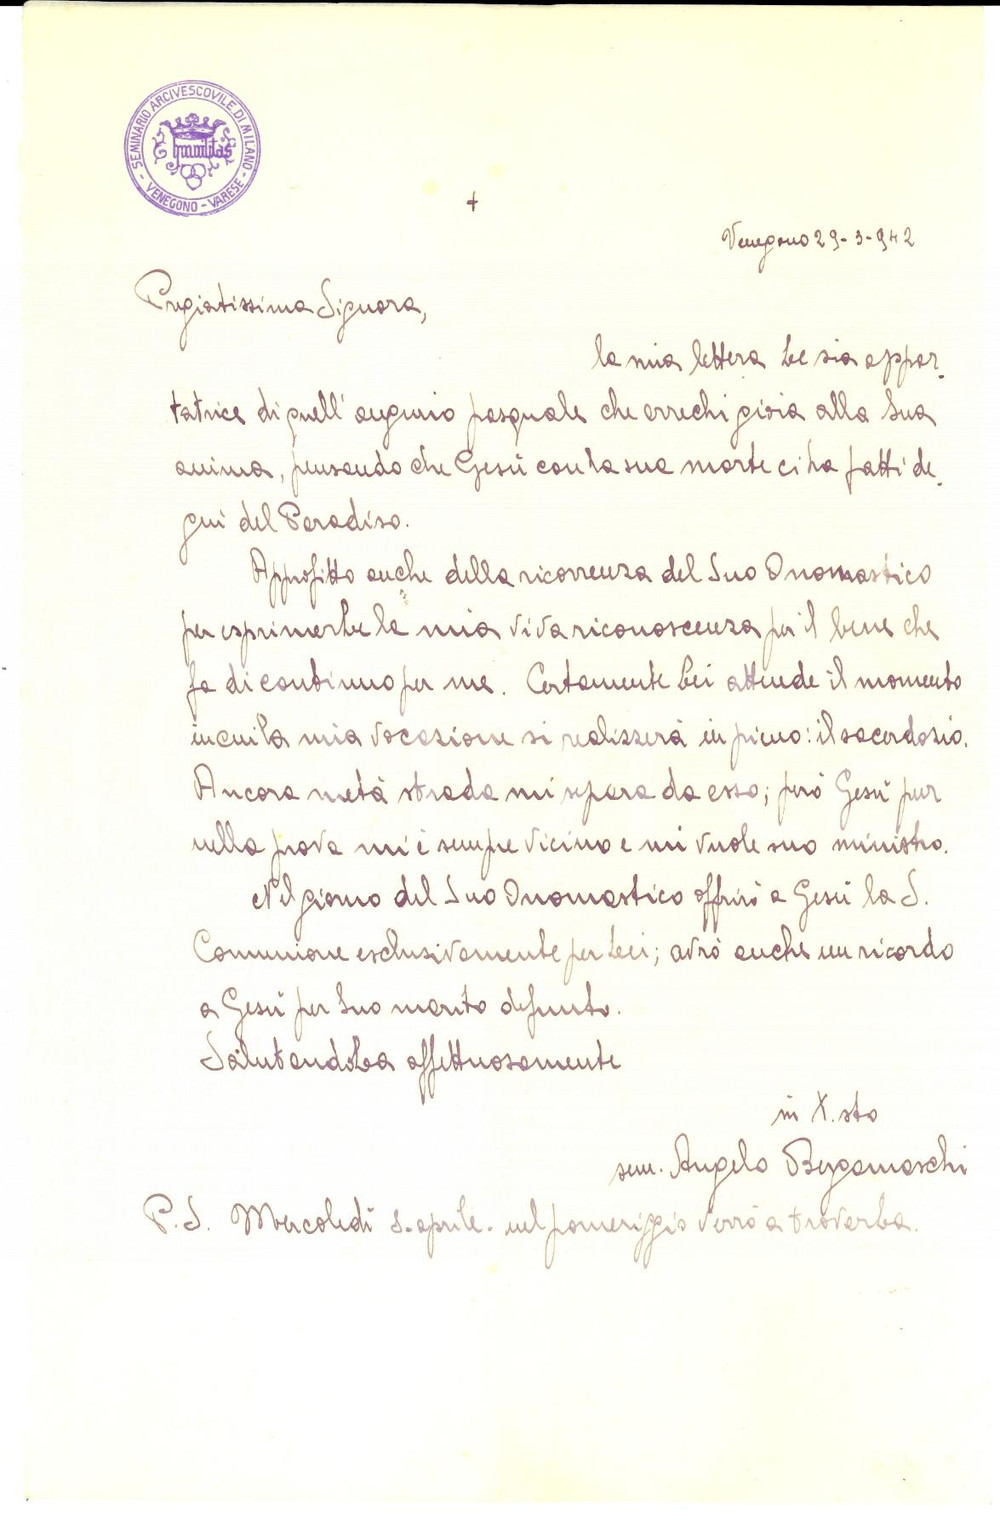 SEMINARIO ARCIVESCOVILE DI MILANO
- VENEGONO - VARESE -
Humilitas
+
Venegono 29-3-942
Pregiatissima Signora,
la mia lettera Le sia appor-
tatrice di quell'augurio pasquale che arrechi gioia alla Sua
anima, pensando che Gesù con la sua morte ci ha fatti de-
gni del Paradiso.
Approfitto anche della ricorrenza del Suo Onomastico
per esprimerLe la mia viva riconoscenza per il bene che
fa di continuo per me. Certamente Lei attende il momento
in cui la mia vocazione si realizzerà in pieno: il sacerdozio.
Ancora metà strada mi separa da esso; però Gesù pur
nella prova mi è sempre vicino e mi vuole suo ministro.
Nel giorno del Suo Onomastico offrirò a Gesù la S.
Comunione esclusivamente per Lei; avrò anche un ricordo
a Gesù per Suo marito defunto.
SalutandoLa affettuosamente
in X.sto
sem. Angelo Bergamaschi
P.S. Mercoledì 8-aprile- nel pomeriggio verrò a trovarLa.